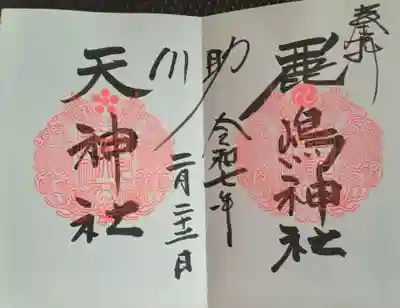 奉拝
鹿嶋神社
助川
令和七年
天神社
二月二十二日